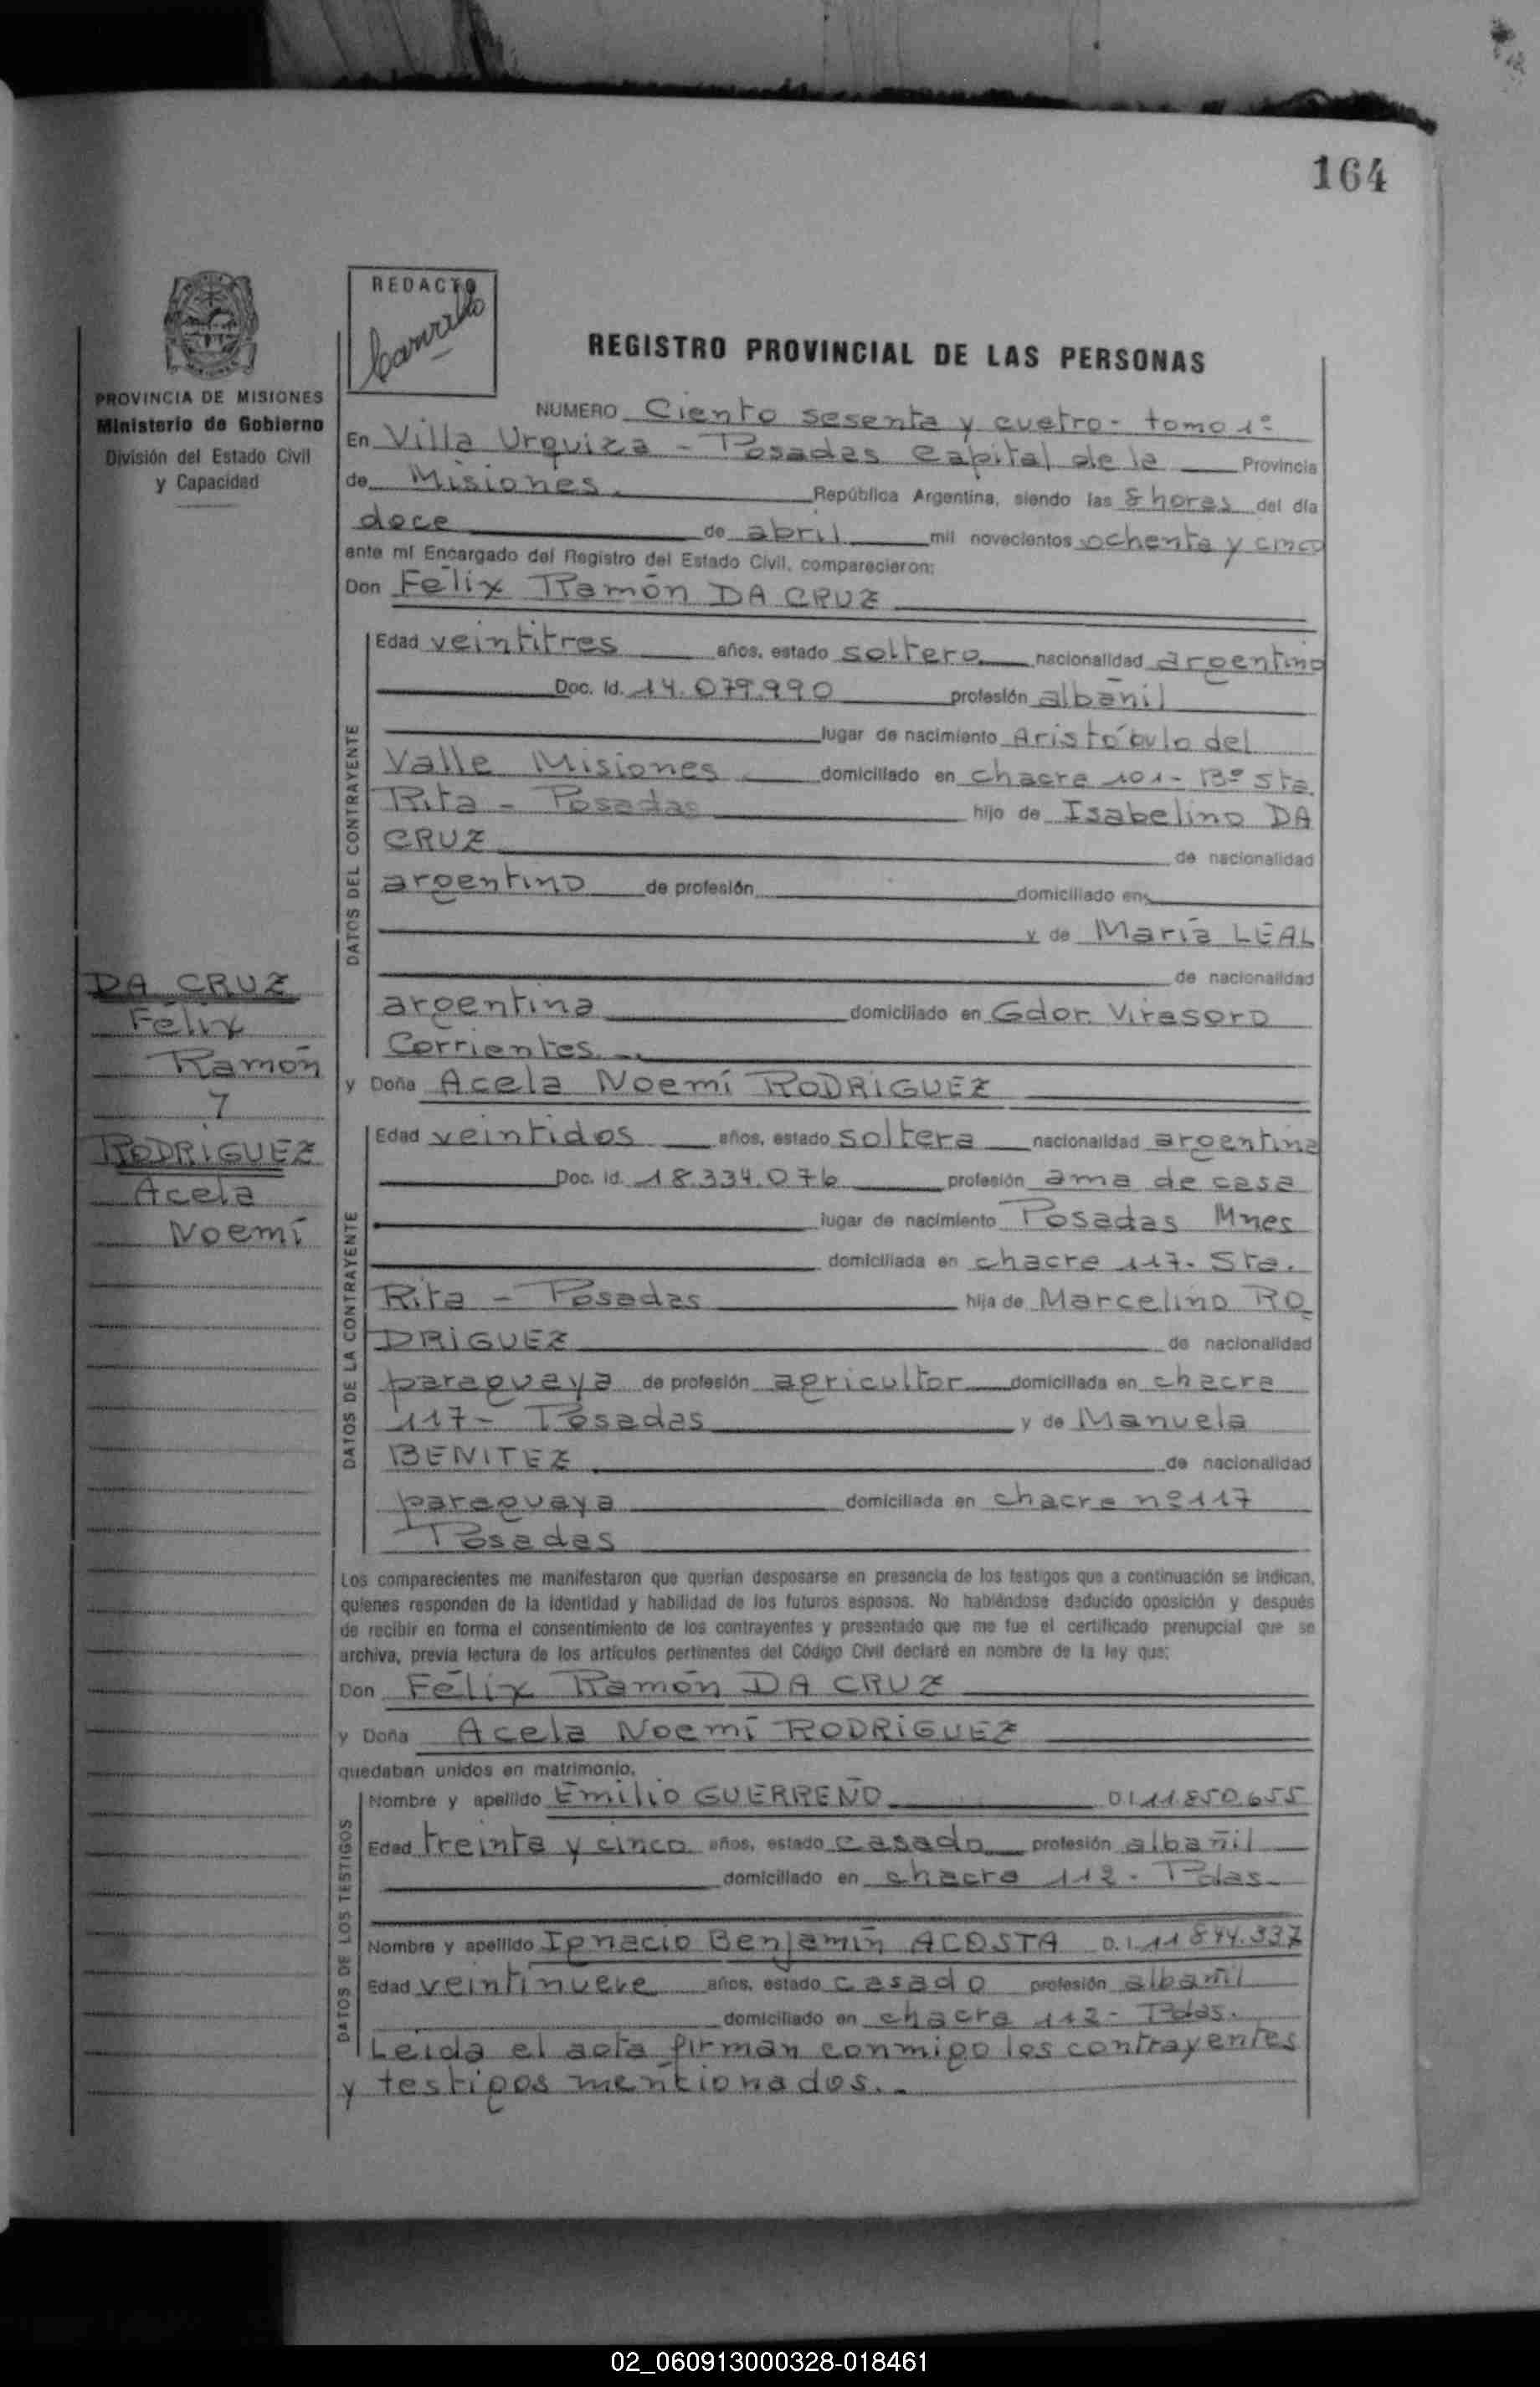 164
REDACTO
Carrillo
REGISTRO PROVINCIAL DE LAS PERSONAS
PROVINCIA DE MISIONES
Ministerio de Gobierno
División del Estado Civil
y Capacidad
NUMERO Ciento sesenta y cuatro - tomo 1º
En Villa Urquiza - Posadas Capital de la Provincia
de Misiones. República Argentina, siendo las 8 horas del día
doce de abril mil novecientos ochenta y cinco
ante mí Encargado del Registro del Estado Civil, comparecieron:
Don Félix Ramón DA CRUZ
DATOS DEL CONTRAYENTE
Edad veintitres años, estado soltero nacionalidad argentino
Doc. Id. 14.079.990 profesión albañil
lugar de nacimiento Aristóbulo del
Valle Misiones domiciliado en chacra 101 - Bº Sta.
Rita - Posadas hijo de Isabelino DA
CRUZ de nacionalidad
argentino de profesión domiciliado en
y de María LEAL
de nacionalidad
argentina domiciliado en Gdor. Virasoro
Corrientes.
DA CRUZ
Félix
Ramón
y
RODRIGUEZ
Acela
Noemí
y Doña Acela Noemí RODRIGUEZ
DATOS DE LA CONTRAYENTE
Edad veintidos años, estado soltera nacionalidad argentina
Doc. Id. 18.334.076 profesión ama de casa
lugar de nacimiento Posadas Mnes
domiciliada en chacra 117 - Sta.
Rita - Posadas hija de Marcelino RO
DRIGUEZ de nacionalidad
paraguaya de profesión agricultor domiciliada en chacra
117 - Posadas y de Manuela
BENITEZ de nacionalidad
paraguaya domiciliada en chacra nº 117
Posadas
Los comparecientes me manifestaron que querían desposarse en presencia de los testigos que a continuación se indican,
quienes responden de la identidad y habilidad de los futuros esposos. No habiéndose deducido oposición y después
de recibir en forma el consentimiento de los contrayentes y presentado que me fue el certificado prenupcial que se
archiva, previa lectura de los artículos pertinentes del Código Civil declaré en nombre de la ley que:
Don Félix Ramón DA CRUZ
y Doña Acela Noemí RODRIGUEZ
quedaban unidos en matrimonio.
DATOS DE LOS TESTIGOS
Nombre y apellido Emilio GUERREÑO D.I. 11.850.655
Edad treinta y cinco años, estado casado profesión albañil
domiciliado en chacra 112 - Pdas.
Nombre y apellido Ignacio Benjamín ACOSTA D.I. 11.844.337
Edad veintinueve años, estado casado profesión albañil
domiciliado en chacra 112 - Pdas.
Leida el acta firman conmigo los contrayentes
y testigos mencionados.
02_060913000328-018461